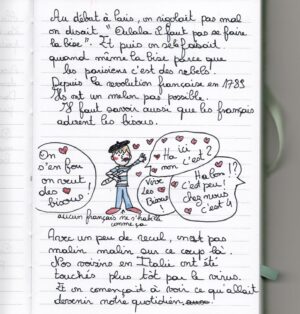 Au début à Paris, on rigolait pas mal
on disait "Oulala il faut pas se faire
la bise". Et puis on se le faisait
quand même la bise parce que
les parisiens c'est des rebels.
Depuis la revolution française en 1789
ils ont un melon pas possible.
Il faut savoir aussi que les français
adorent les bisous.
On
s'en fou
on veut
des
bisous !
Ha ici
non c'est 2
Vive
Les
Bisous !
Ha bon !?
c'est peu !
chez nous
c'est 4
aucun français ne s'habille
comme ça
Avec un peu de recul, c'était pas
malin malin sur ce coup là.
Nos voisins en Italie ont été
touchés plus tôt par le virus.
Et on commençait à voir ce qu'allait
devenir notre quotidien